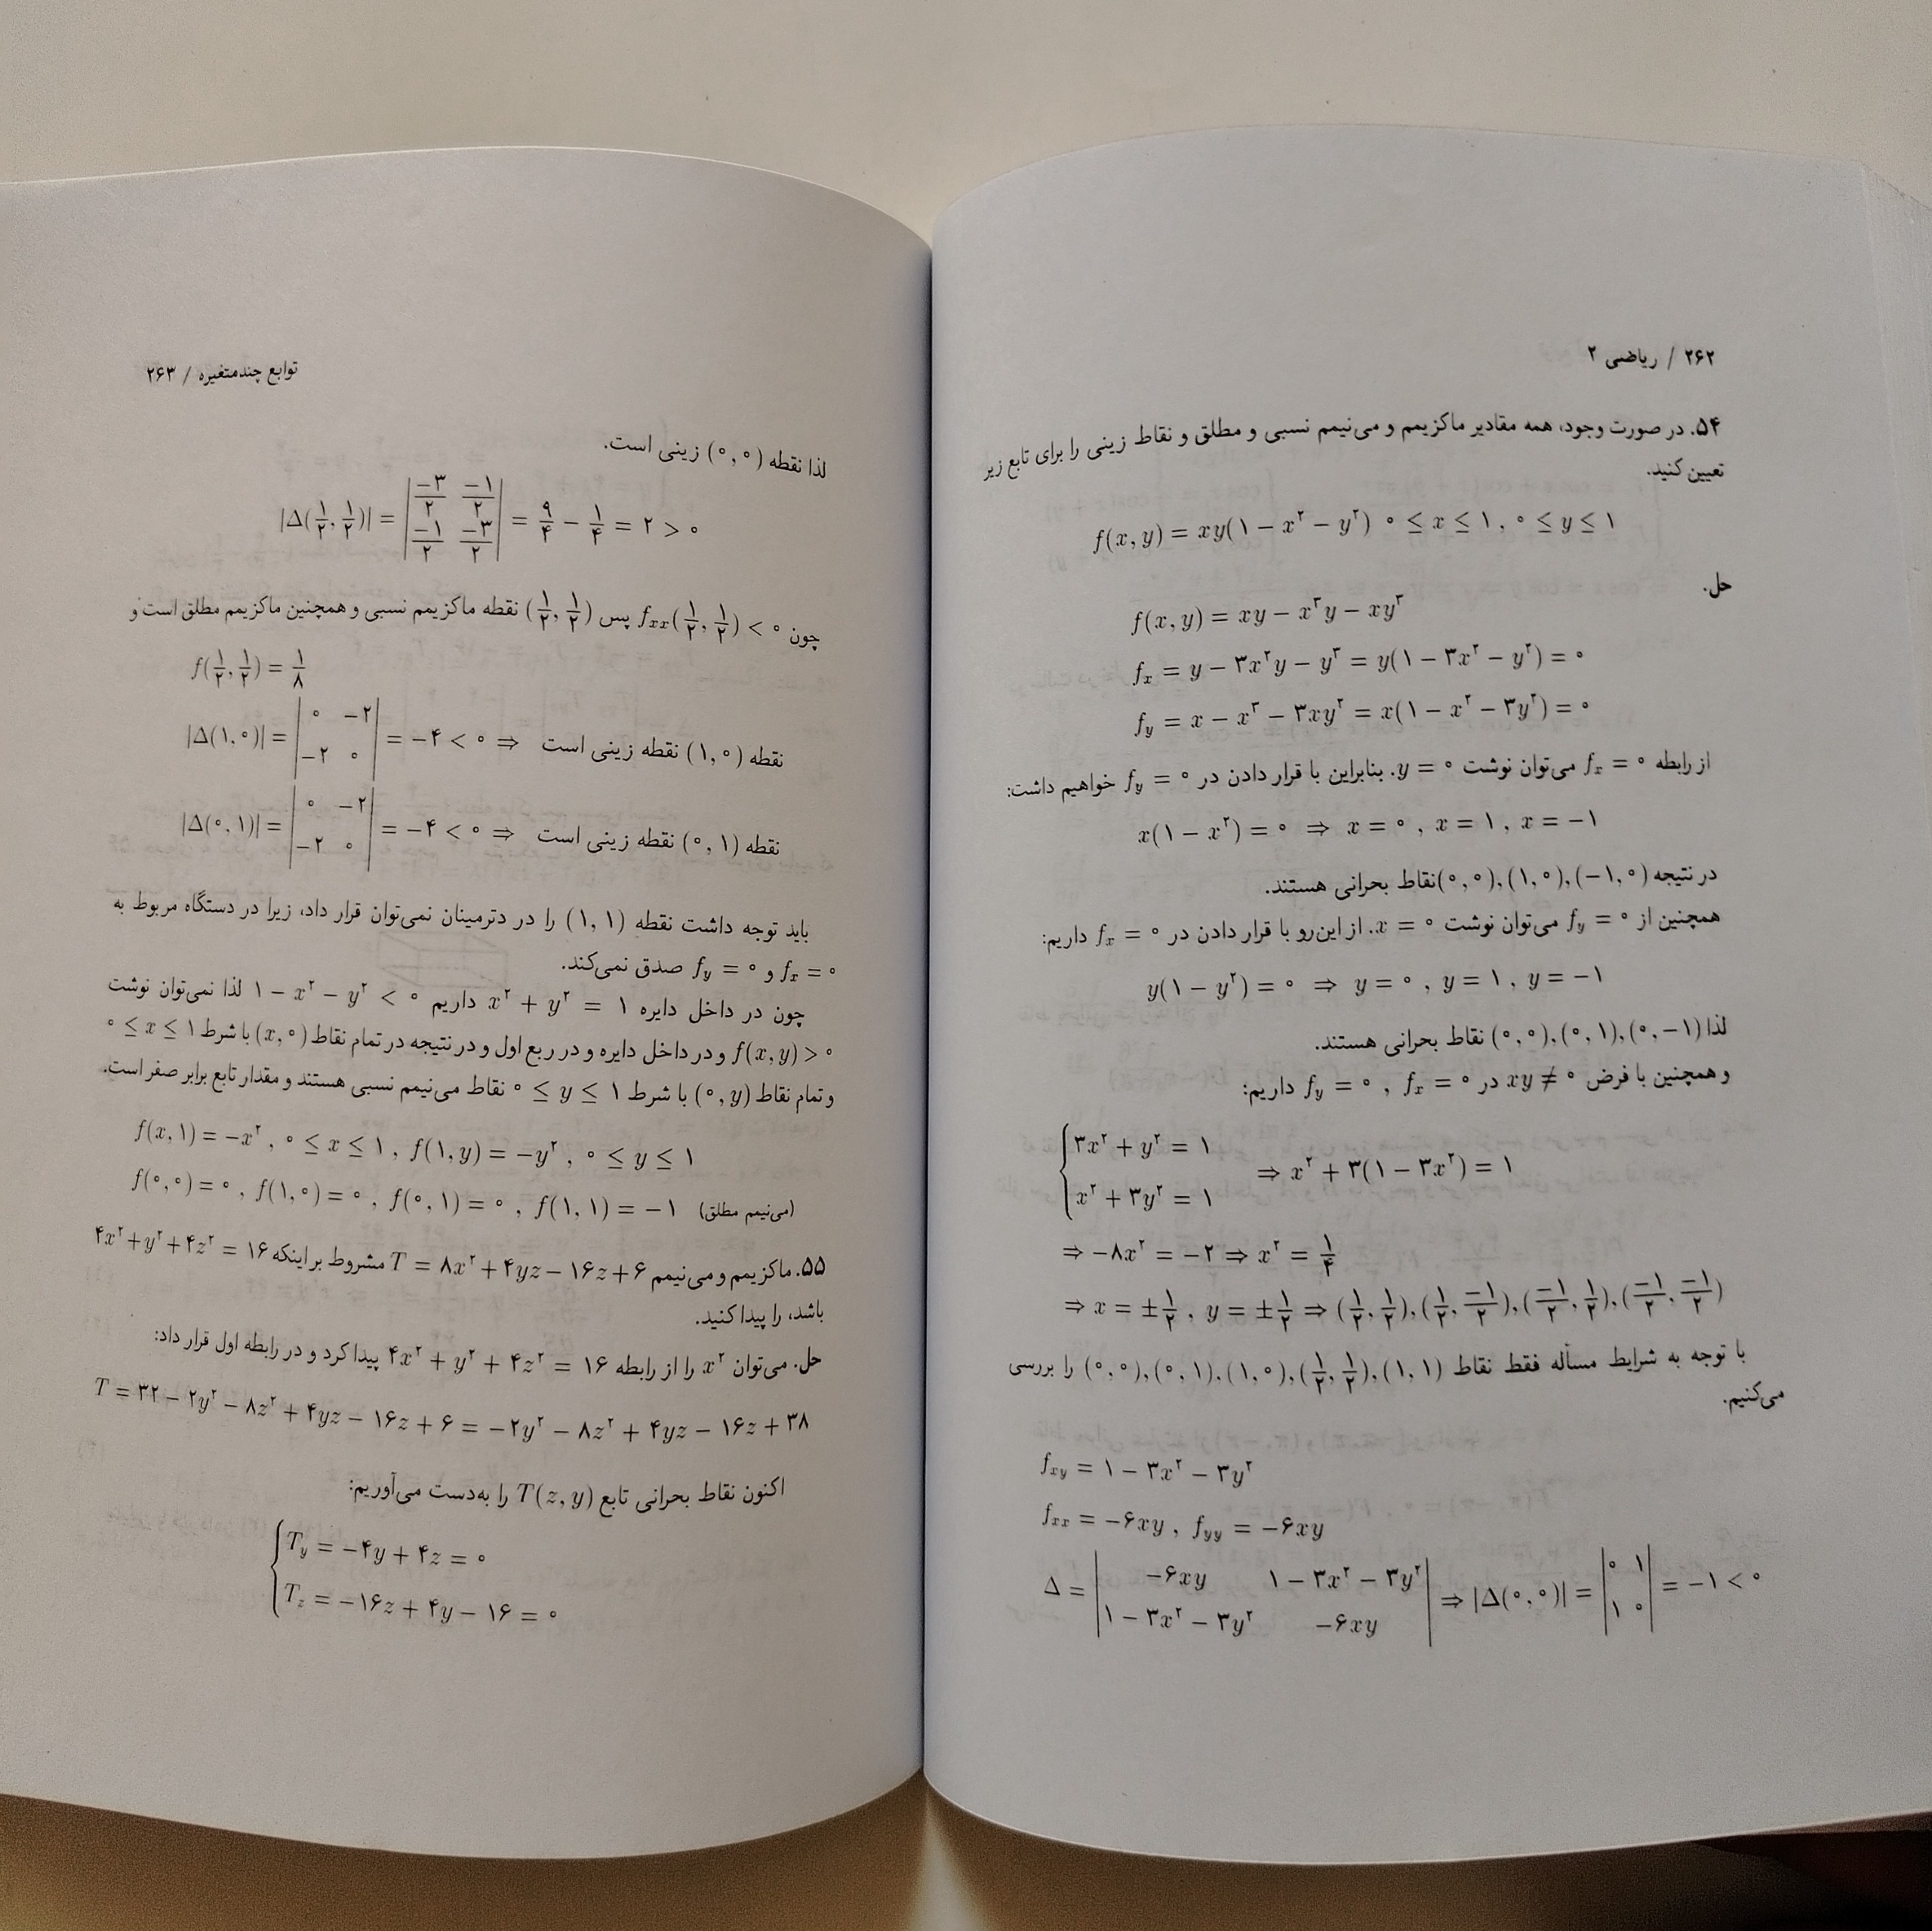 ۲۶۲ / ریاضی ۲
۵۴. در صورت وجود، همه مقادیر ماکزیمم و می‌نیمم نسبی و مطلق و نقاط زینی را برای تابع زیر
تعیین کنید.
f(x, y) = xy(۱ − x^۲ − y^۲) ۰ ≤ x ≤ ۱ , ۰ ≤ y ≤ ۱
حل.
f(x, y) = xy − x^۳y − xy^۳
f_x = y − ۳x^۲y − y^۳ = y(۱ − ۳x^۲ − y^۲) = ۰
f_y = x − x^۳ − ۳xy^۲ = x(۱ − x^۲ − ۳y^۲) = ۰
از رابطه f_x = ۰ می‌توان نوشت y = ۰. بنابراین با قرار دادن در f_y = ۰ خواهیم داشت:
x(۱ − x^۲) = ۰ ⇒ x = ۰ , x = ۱ , x = −۱
در نتیجه (۰,۰),(۱,۰),(−۱,۰) نقاط بحرانی هستند.
همچنین از f_y = ۰ می‌توان نوشت x = ۰. از این‌رو با قرار دادن در f_x = ۰ داریم:
y(۱ − y^۲) = ۰ ⇒ y = ۰ , y = ۱ , y = −۱
لذا (۰,۰),(۰,۱),(۰,−۱) نقاط بحرانی هستند.
و همچنین با فرض xy ≠ ۰ در f_y = ۰ , f_x = ۰ داریم:
{ ۳x^۲ + y^۲ = ۱
x^۲ + ۳y^۲ = ۱ ⇒ x^۲ + ۳(۱ − ۳x^۲) = ۱
⇒ −۸x^۲ = −۲ ⇒ x^۲ = ۱/۴
⇒ x = ±۱/۲ , y = ±۱/۲ ⇒ (۱/۲, ۱/۲),(۱/۲, −۱/۲),(−۱/۲, ۱/۲),(−۱/۲, −۱/۲)
با توجه به شرایط مسأله فقط نقاط (۰,۰),(۰,۱),(۱,۰),(۱/۲, ۱/۲),(۱,۱) را بررسی
می‌کنیم.
f_xy = ۱ − ۳x^۲ − ۳y^۲
f_xx = −۶xy , f_yy = −۶xy
Δ = | −۶xy ۱ − ۳x^۲ − ۳y^۲ |
| ۱ − ۳x^۲ − ۳y^۲ −۶xy | ⇒ |Δ(۰,۰)| = | ۰ ۱ | | ۱ ۰ | = −۱ < ۰
توابع چندمتغیره / ۲۶۳
لذا نقطه (۰,۰) زینی است.
|Δ(۱/۲, ۱/۲)| = | −۳/۲ −۱/۲ | | −۱/۲ −۳/۲ | = ۹/۴ − ۱/۴ = ۲ > ۰
چون f_xx(۱/۲, ۱/۲) < ۰ پس (۱/۲, ۱/۲) نقطه ماکزیمم نسبی و همچنین ماکزیمم مطلق است و
f(۱/۲, ۱/۲) = ۱/۸
|Δ(۱,۰)| = | ۰ −۲ | | −۲ ۰ | = −۴ < ۰ ⇒ نقطه (۱,۰) نقطه زینی است
|Δ(۰,۱)| = | ۰ −۲ | | −۲ ۰ | = −۴ < ۰ ⇒ نقطه (۰,۱) نقطه زینی است
باید توجه داشت نقطه (۱,۱) را در دترمینان نمی‌توان قرار داد، زیرا در دستگاه مربوط به
f_x = ۰ و f_y = ۰ صدق نمی‌کند.
چون در داخل دایره x^۲ + y^۲ = ۱ داریم ۱ − x^۲ − y^۲ < ۰ لذا نمی‌توان نوشت
f(x, y) > ۰ و در داخل دایره و در ربع اول و در نتیجه در تمام نقاط (x,۰) با شرط ۰ ≤ x ≤ ۱
و تمام نقاط (۰,y) با شرط ۰ ≤ y ≤ ۱ نقاط می‌نیمم نسبی هستند و مقدار تابع برابر صفر است.
f(x,۱) = −x^۲ , ۰ ≤ x ≤ ۱ , f(۱,y) = −y^۲ , ۰ ≤ y ≤ ۱
f(۰,۰) = ۰ , f(۱,۰) = ۰ , f(۰,۱) = ۰ , f(۱,۱) = −۱ (می‌نیمم مطلق)
۵۵. ماکزیمم و می‌نیمم T = ۸x^۲ + ۴yz − ۱۶z + ۶ مشروط بر اینکه ۴x^۲ + y^۲ + ۴z^۲ = ۱۶
باشد، را پیدا کنید.
حل. می‌توان x^۲ را از رابطه ۴x^۲ + y^۲ + ۴z^۲ = ۱۶ پیدا کرد و در رابطه اول قرار داد:
T = ۳۲ − ۲y^۲ − ۸z^۲ + ۴yz − ۱۶z + ۶ = −۲y^۲ − ۸z^۲ + ۴yz − ۱۶z + ۳۸
اکنون نقاط بحرانی تابع T(z, y) را به‌دست می‌آوریم:
{ T_y = −۴y + ۴z = ۰
T_z = −۱۶z + ۴y − ۱۶ = ۰